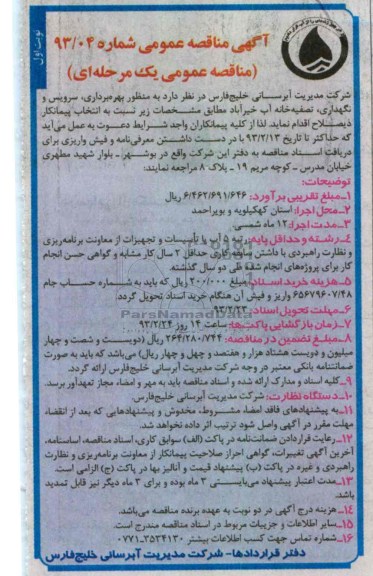 نوبت اول
آگهی مناقصه عمومی شماره ۹۳/۰۴
(مناقصه عمومی یک مرحله‌ای)
شرکت مدیریت آبرسانی خلیج‌فارس در نظر دارد به منظور بهره‌برداری، سرویس و
نگهداری، تصفیه‌خانه آب خیرآباد مطابق مشخصات زیر نسبت به انتخاب پیمانکار
ذیصلاح اقدام نماید. لذا از کلیه پیمانکاران واجد شرایط دعوت به عمل می‌آید
که حداکثر تا تاریخ ۹۳/۲/۱۳ با در دست داشتن معرفی‌نامه و فیش واریزی برای
دریافت اسناد مناقصه به دفتر این شرکت واقع در بوشهر ـ بلوار شهید مطهری
خیابان مدرس ـ کوچه مریم ۱۹ ـ پلاک ۸ مراجعه نمایند:
توضیحات:
۱ـ مبلغ تقریبی برآورد: ۶/۴۶۲/۶۹۱/۶۴۶ ریال
۲ـ محل اجرا: استان کهکیلویه و بویراحمد
۳ـ مدت اجرا: ۱۲ ماه شمسی
۴ـ رشته و حداقل پایه: رتبه ۵ آب یا تأسیسات و تجهیزات از معاونت برنامه‌ریزی
و نظارت راهبردی با داشتن سابقه کاری حداقل ۲ سال کار مشابه و گواهی حسن انجام
کار برای پروژه‌های انجام شده طی دو سال گذشته.
۵ـ هزینه خرید اسناد: مبلغ ۲۰۰/۰۰۰ ریال که باید به شماره حساب جام
۶۵۶۷۹۶۰۷/۴۸ واریز و فیش آن هنگام خرید اسناد تحویل گردد.
۶ـ مهلت تحویل اسناد: ۹۳/۲/۲۳
۷ـ زمان بازگشایی پاکت‌ها: ساعت ۱۴ روز ۹۳/۲/۲۴
۸ـ مبلغ تضمین در مناقصه: ۲۶۴/۲۸۰/۷۴۴ ریال (دویست و شصت و چهار
میلیون و دویست هشتاد هزار و هفتصد و چهل و چهار ریال) می‌باشد که باید به صورت
ضمانتنامه بانکی معتبر در وجه شرکت مدیریت آبرسانی خلیج‌فارس ارائه گردد.
۹ـ کلیه اسناد و مدارک ارائه شده و اسناد مناقصه باید به مهر و امضاء مجاز تعهدآور برسد.
۱۰ـ دستگاه نظارت: شرکت مدیریت آبرسانی خلیج‌فارس.
۱۱ـ به پیشنهادهای فاقد امضا، مشروط، مخدوش و پیشنهادهایی که بعد از انقضاء
مهلت مقرر در آگهی واصل شود ترتیب اثر داده نخواهد شد.
۱۲ـ رعایت قراردادن ضمانت‌نامه در پاکت (الف) سوابق کاری، اسناد مناقصه، اساسنامه،
آخرین آگهی تغییرات، گواهی احراز صلاحیت پیمانکار از معاونت برنامه‌ریزی و نظارت
راهبردی و غیره در پاکت (ب) پیشنهاد قیمت و آنالیز بها در پاکت (ج) الزامی است.
۱۳ـ مدت اعتبار پیشنهاد می‌بایستی ۳ ماه بوده و برای ۳ ماه دیگر نیز قابل تمدید
باشد.
۱۴ـ هزینه درج آگهی در دو نوبت به عهده برنده مناقصه می‌باشد.
۱۵ـ سایر اطلاعات و جزییات مربوط در اسناد مناقصه مندرج است.
۱۶ـ شماره تماس جهت کسب اطلاعات بیشتر ۳۵۳۴۱۳۰-۰۷۷۱
دفتر قراردادها- شرکت مدیریت آبرسانی خلیج‌فارس